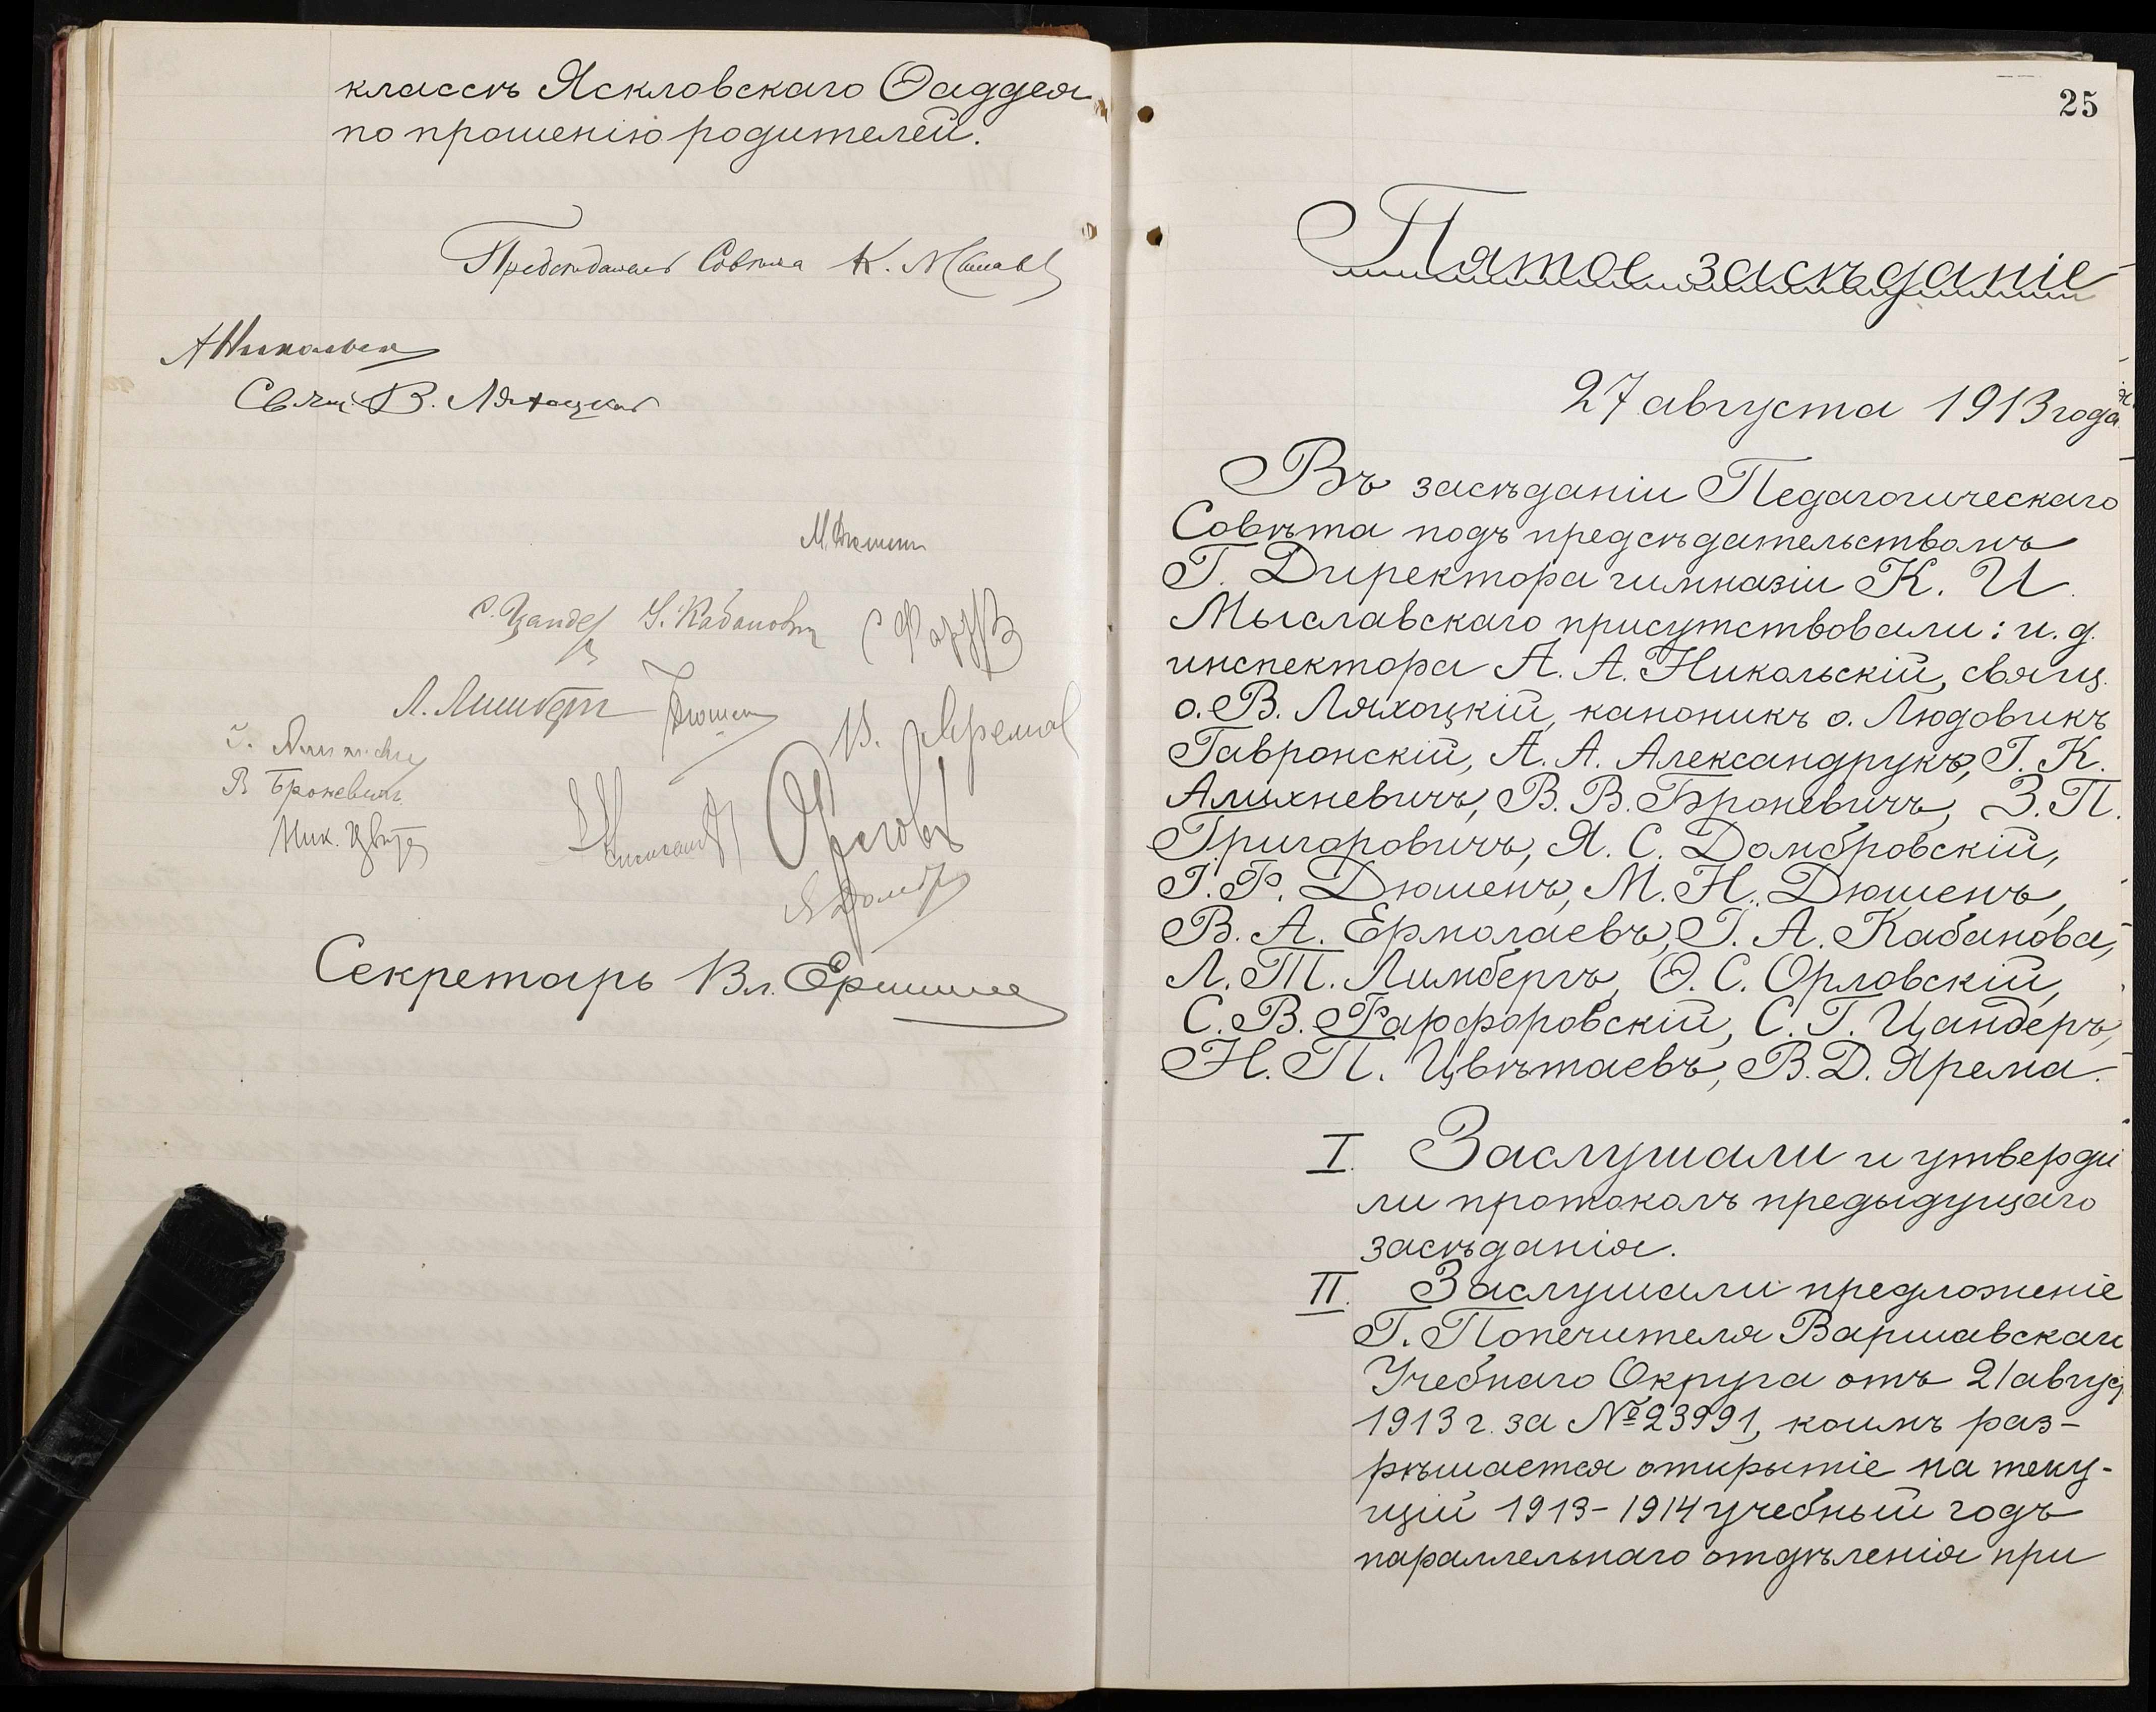 классѣ Яскловскаго Ѳаддея
по прошенію родителей.
Предсѣдатель Совѣта К.
А Никольскій
Свящ. В. Ляхоцкій
М. Дюшенъ
С. Цандеръ
Кабанова
С Фарф
Л. Лимбергъ
Дюшен
В. Ярема
В Броневичъ
Ник. Цвѣтае
Я Домбр
Секретарь Вл.
25
Пятое засѣданіе
27 августа 1913 года
Въ засѣданіи Педагогическаго
Совѣта подъ предсѣдательствомъ
Г. Директора гимназіи К. И.
Мыславскаго присутствовали: и. д.
инспектора А. А. Никольскій, свящ.
о. В. Ляхоцкій, каноникъ о. Людовикъ
Гавронскій, А. А. Александрукъ, І. К.
Алихневичъ, В. В. Броневичъ, З. П.
Григоровичъ, Я. С. Домбровскій,
І. Ф. Дюшенъ, М. Н. Дюшенъ,
В. А. Ермолаевъ, І. А. Кабанова,
Л. Т. Лимбергъ, Ѳ. С. Орловскій,
С. В. Фарфоровскій, С. Г. Цандеръ,
Н. П. Цвѣтаевъ, В. Д. Ярема.
I. Заслушали и утверди
ли протоколъ предыдущаго
засѣданія.
II. Заслушали предложеніе
Г. Попечителя Варшавскаго
Учебнаго Округа отъ 21 авгус
1913 г. за № 23991, коимъ раз-
рѣшается открытіе на теку-
щій 1913-1914 учебный годъ
параллельнаго отдѣленія при